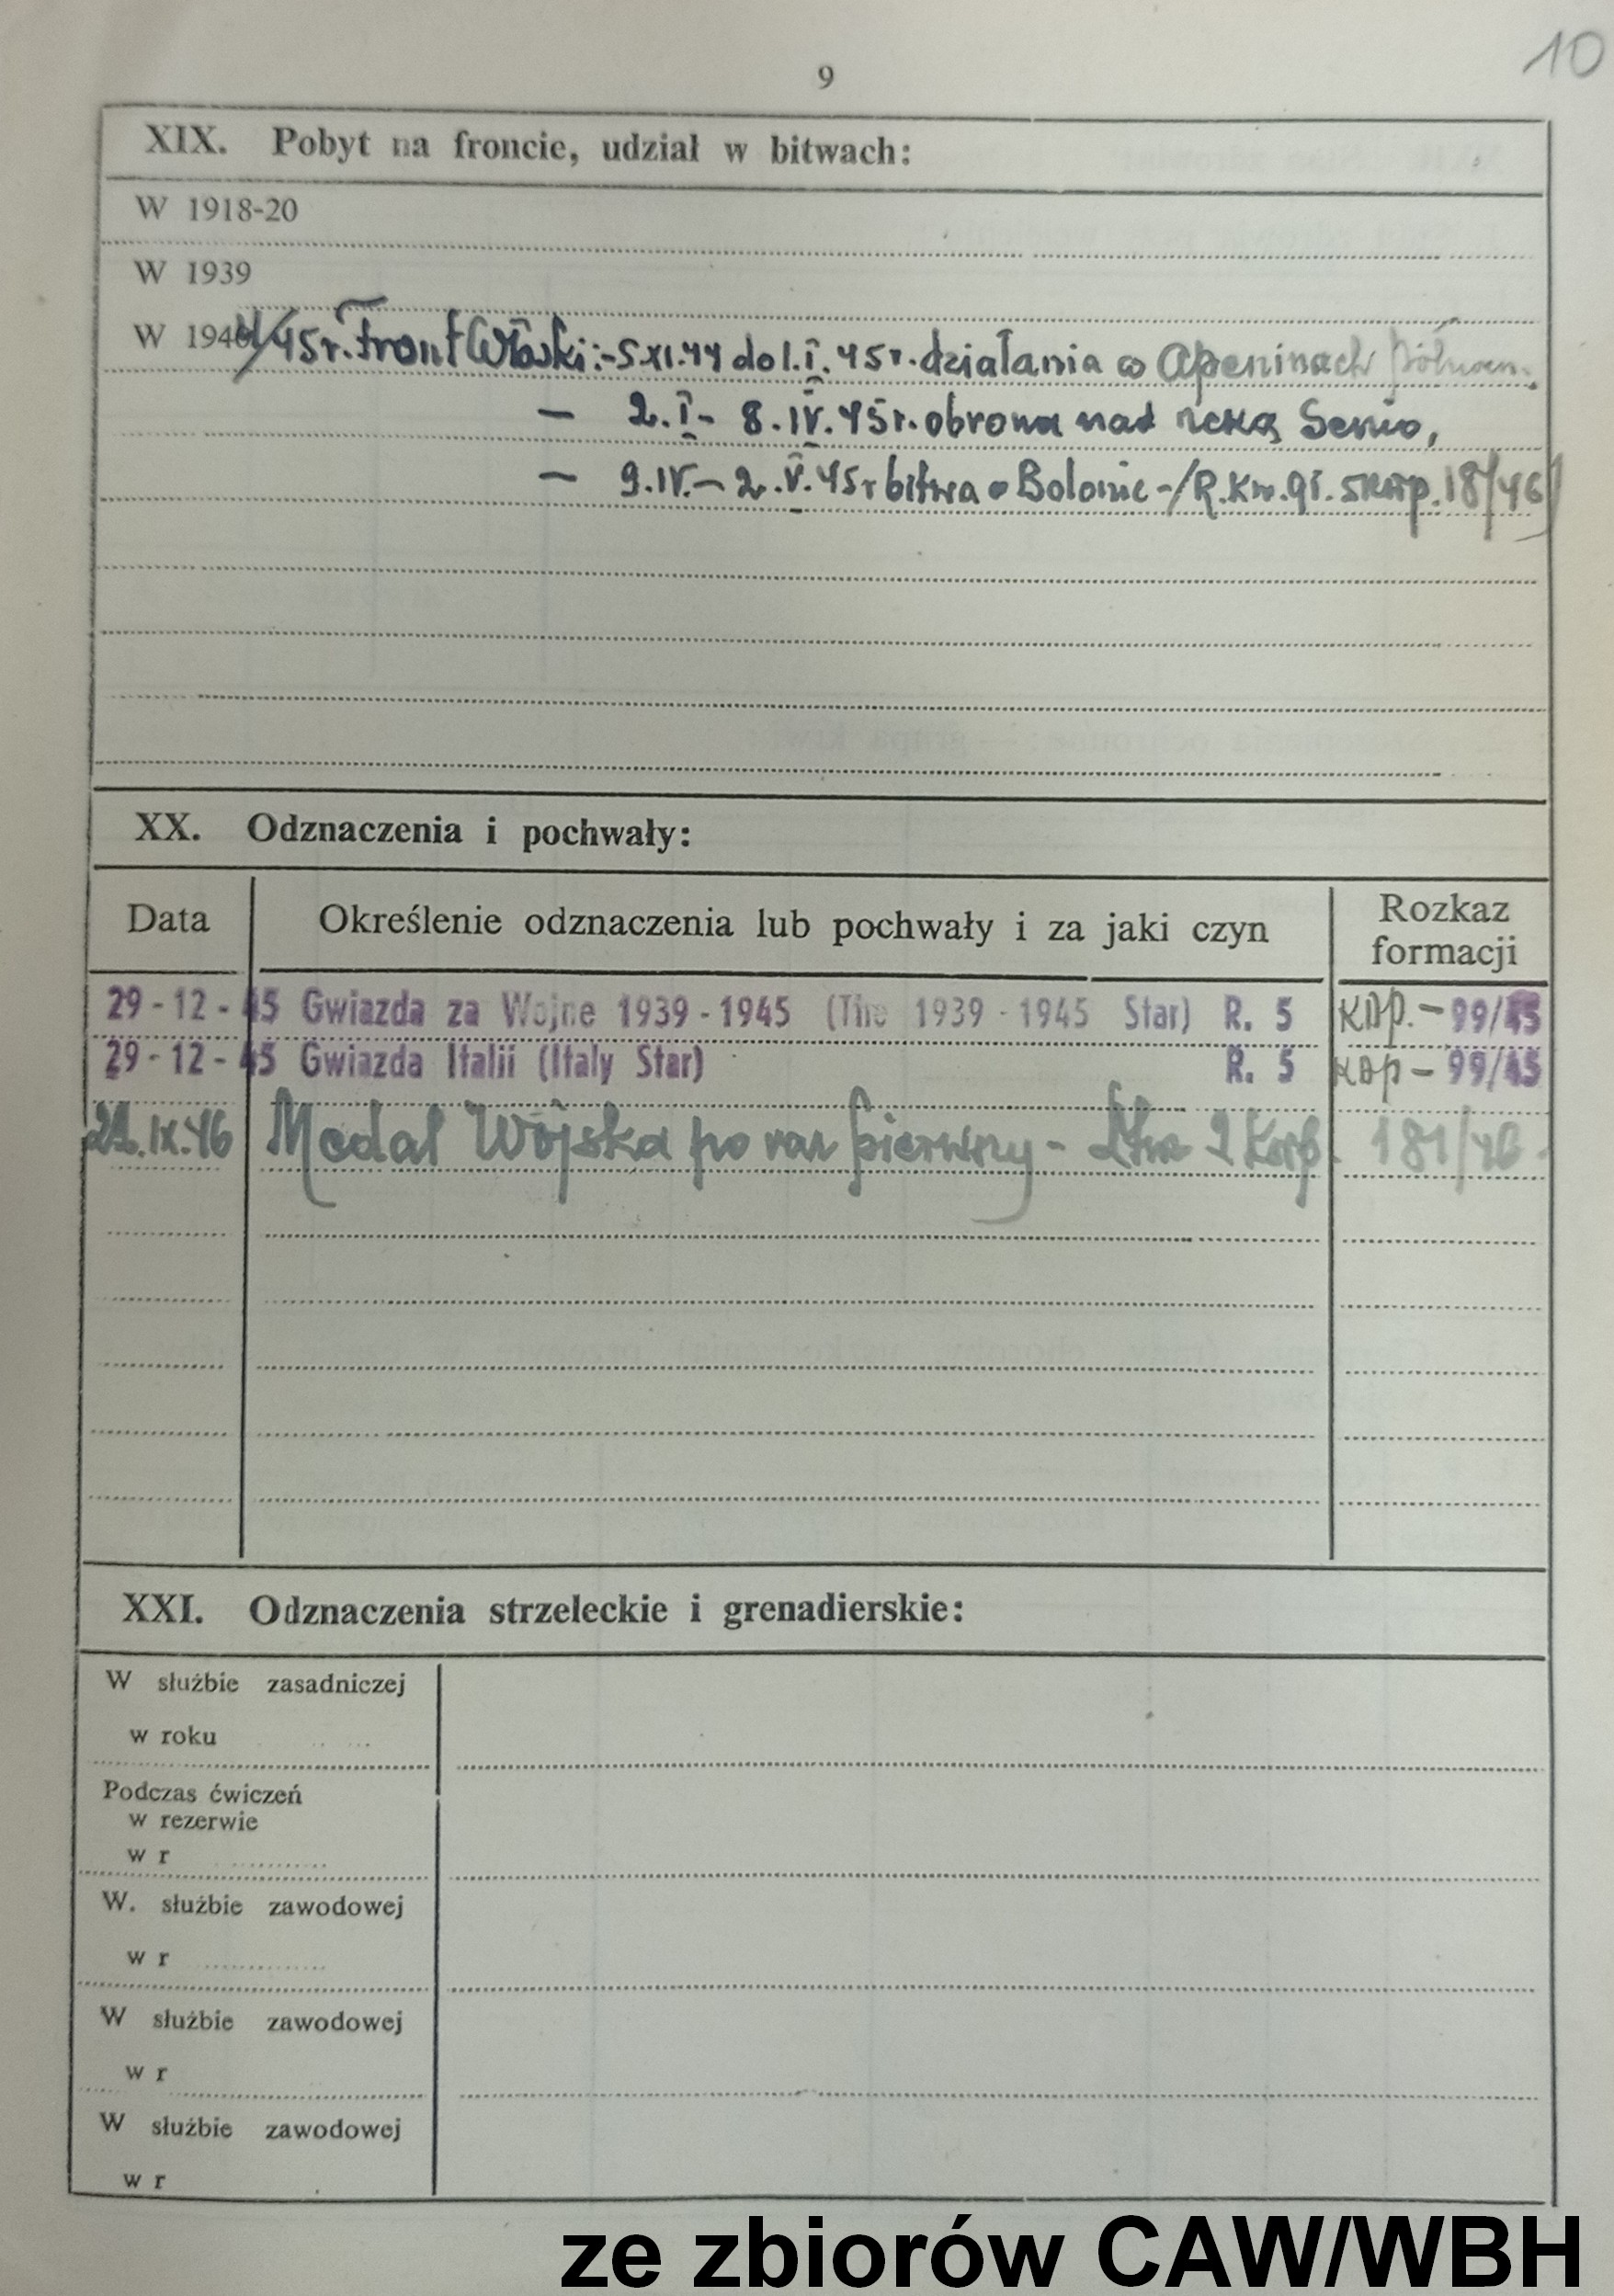 10
9
XIX. Pobyt na froncie, udział w bitwach:
W 1918-20
W 1939
W 1944/45r. Front Włoski:-5 XI.44 do 1.I.45r. działania w Apeninach
— 2.I- 8.IV.45r. obrona nad rzeką Senio,
— 9.IV.- 2.V.45r bitwa o Bolonie-/R. 5 KDP. 18/46/
XX. Odznaczenia i pochwały:
Data Określenie odznaczenia lub pochwały i za jaki czyn Rozkaz
formacji
29-12-45 Gwiazda za Wojne 1939-1945 (The 1939-1945 Star) R. 5 KDP.- 99/45
29-12-45 Gwiazda Italii (Italy Star) R. 5 KDP - 99/45
IX.46 Medal Wojska po raz pierwszy - 2 Korp. 181/46.
XXI. Odznaczenia strzeleckie i grenadierskie:
W służbie zasadniczej
w roku
Podczas ćwiczeń
w rezerwie
w r
W. służbie zawodowej
w r
W służbie zawodowej
w r
W służbie zawodowej
w r
ze zbiorów CAW/WBH